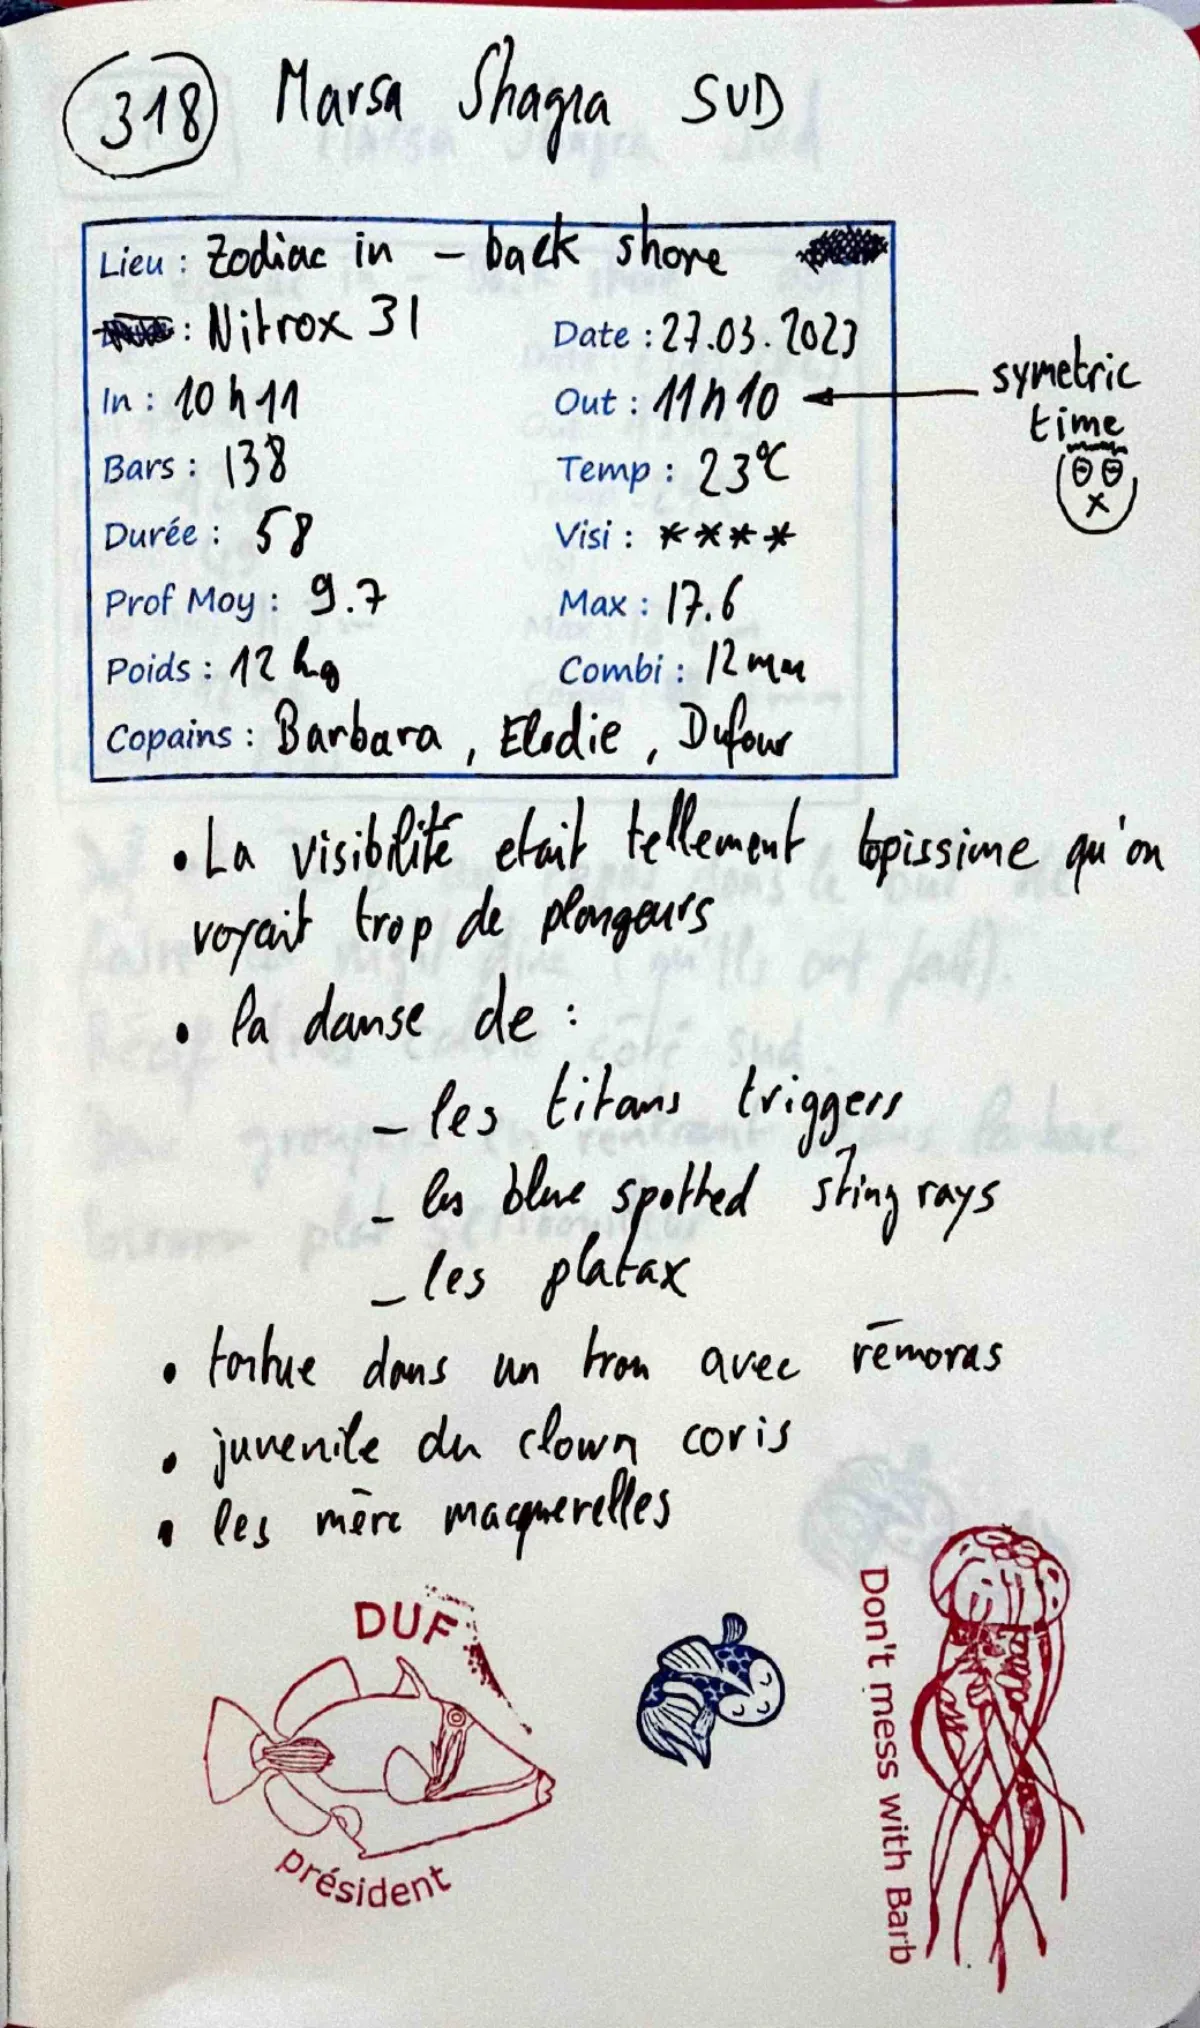 318 Marsa Shagra SUD
Lieu : Zodiac in - back shore
: Nitrox 31
Date : 27.03.2023
In : 10h11
Out : 11h10
symetric
time
Bars : 138
Temp : 23°C
Durée : 58
Visi : ****
Prof Moy : 9.7
Max : 17.6
Poids : 12 kg
Combi : 12 mm
Copains : Barbara, Elodie, Dufour
• La visibilité etait tellement topissime qu'on
voyait trop de plongeurs
• la danse de :
- les titans triggers
- les blue spotted sting rays
- les platax
• tortue dans un trou avec rémoras
• juvenile du clown coris
• les mère macquerelles
DUF
président
Don't mess with Barb